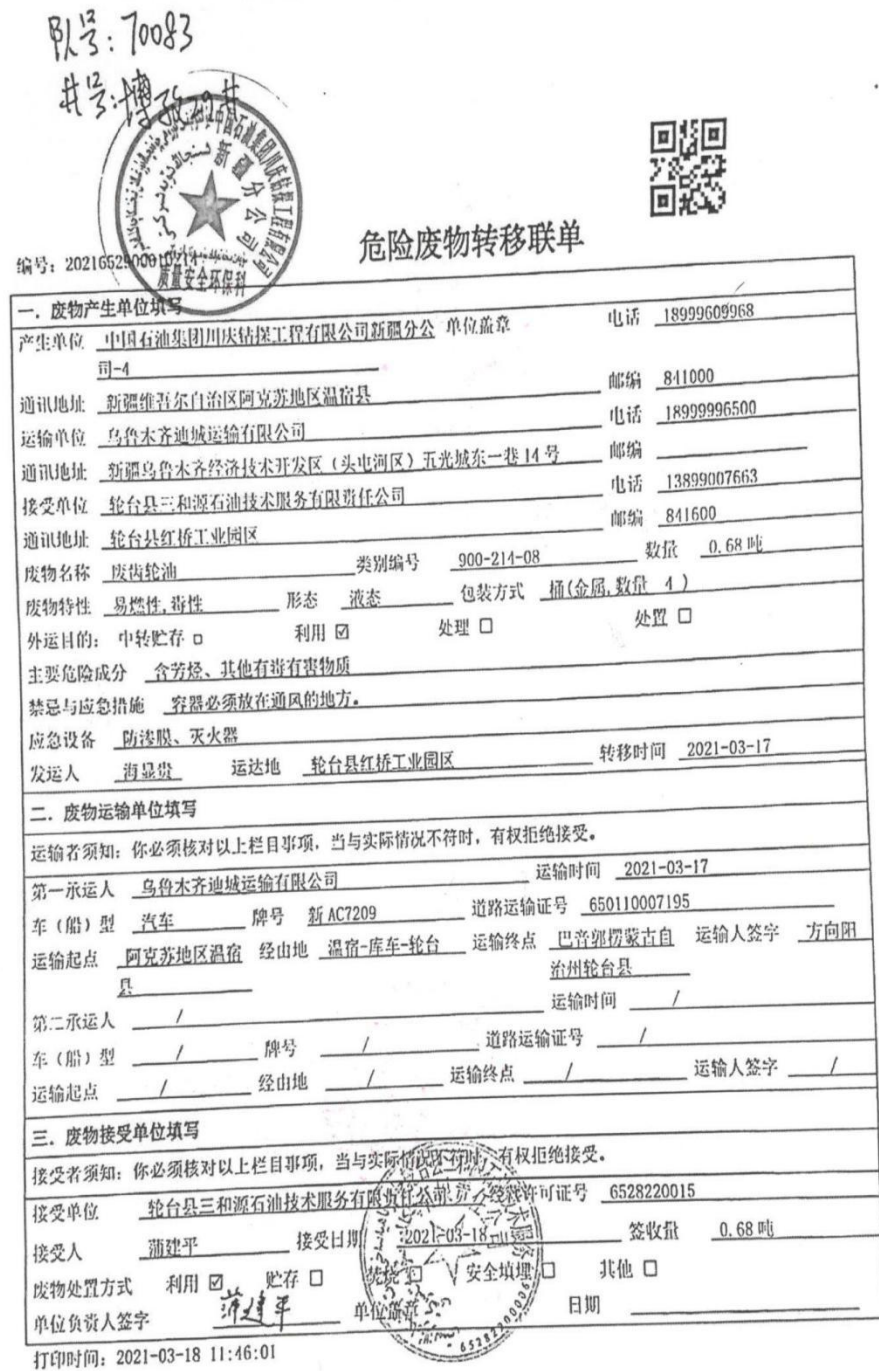 队号:70083
井号:博孜29井
中国石油集团川庆钻探工程有限公司
新疆分公司
质量安全环保科
危险废物转移联单
编号:2021652900010214
一. 废物产生单位填写
产生单位 中国石油集团川庆钻探工程有限公司新疆分公 单位盖章 电话 18999609968
司-4
通讯地址 新疆维吾尔自治区阿克苏地区温宿县 邮编 841000
运输单位 乌鲁木齐迪城运输有限公司 电话 18999996500
通讯地址 新疆乌鲁木齐经济技术开发区(头屯河区)五光城东一巷14号 邮编
接受单位 轮台县三和源石油技术服务有限责任公司 电话 13899007663
通讯地址 轮台县红桥工业园区 邮编 841600
废物名称 废齿轮油 类别编号 900-214-08 数量 0.68吨
废物特性 易燃性,毒性 形态 液态 包装方式 桶(金属,数量 4 )
外运目的: 中转贮存 □ 利用 ☑ 处理 □ 处置 □
主要危险成分 含芳烃、其他有毒有害物质
禁忌与应急措施 容器必须放在通风的地方。
应急设备 防渗膜、灭火器
发运人 海显贵 运达地 轮台县红桥工业园区 转移时间 2021-03-17
二. 废物运输单位填写
运输者须知: 你必须核对以上栏目事项, 当与实际情况不符时, 有权拒绝接受。
第一承运人 乌鲁木齐迪城运输有限公司 运输时间 2021-03-17
车(船)型 汽车 牌号 新AC7209 道路运输证号 650110007195
运输起点 阿克苏地区温宿 经由地 温宿-库车-轮台 运输终点 巴音郭楞蒙古自 运输人签字 方向阳
县 治州轮台县
第二承运人 / 运输时间 /
车(船)型 / 牌号 / 道路运输证号 /
运输起点 / 经由地 / 运输终点 / 运输人签字 /
三. 废物接受单位填写
接受者须知: 你必须核对以上栏目事项, 当与实际情况不符时, 有权拒绝接受。
接受单位 轮台县三和源石油技术服务有限责任公司 经营许可证号 6528220015
接受人 蒲建平 接受日期 2021-03-18 签收量 0.68吨
废物处置方式 利用 ☑ 贮存 □ 焚烧 □ 安全填埋 □ 其他 □
单位负责人签字 蒲建平 单位盖章 日期
打印时间: 2021-03-18 11:46:01